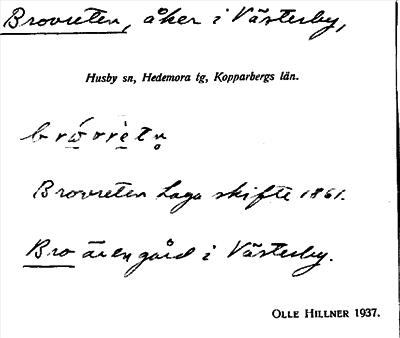 Brovreten, åker i Västerby,
Husby sn, Hedemora tg, Kopparbergs län.
Brovreten Laga skifte 1861.
Bro är en gård i Västerby.
OLLE HILLNER 1937.